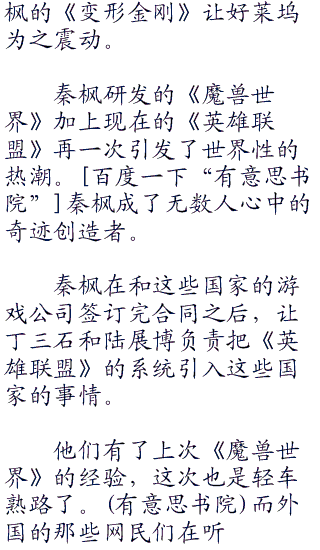 枫的《变形金刚》让好莱坞
为之震动。
秦枫研发的《魔兽世
界》加上现在的《英雄联
盟》再一次引发了世界性的
热潮。[百度一下“有意思书
院”]秦枫成了无数人心中的
奇迹创造者。
秦枫在和这些国家的游
戏公司签订完合同之后，让
丁三石和陆展博负责把《英
雄联盟》的系统引入这些国
家的事情。
他们有了上次《魔兽世
界》的经验，这次也是轻车
熟路了。(有意思书院)而外
国的那些网民们在听